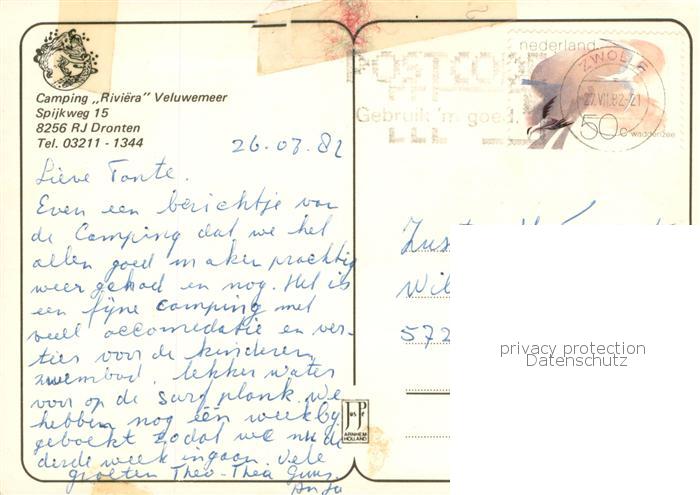 Camping „Riviëra" Veluwemeer
Spijkweg 15
8256 RJ Dronten
Tel. 03211 - 1344
26.07.82
Lieve Tante.
Even een berichtje van
de Camping dat we het
allen goed maken prachtig
weer gehad en nog. Het is
een fijne camping met
veel accomedatie en ver-
tier voor de kinderen
zwembad. lekker water
voor op de surfplank. We
hebben nog één week bij
geboekt zodat we nu de
derde week ingaan. Vele
groeten Theo - Thea Guus
Anja
POSTCODE
Gebruik 'm goed.
nederland
ZWOLLE
27.VII.82-21
50 c waddenzee
Zuster
Wil
572
JosPe
ARNHEM
HOLLAND
privacy protection
Datenschutz